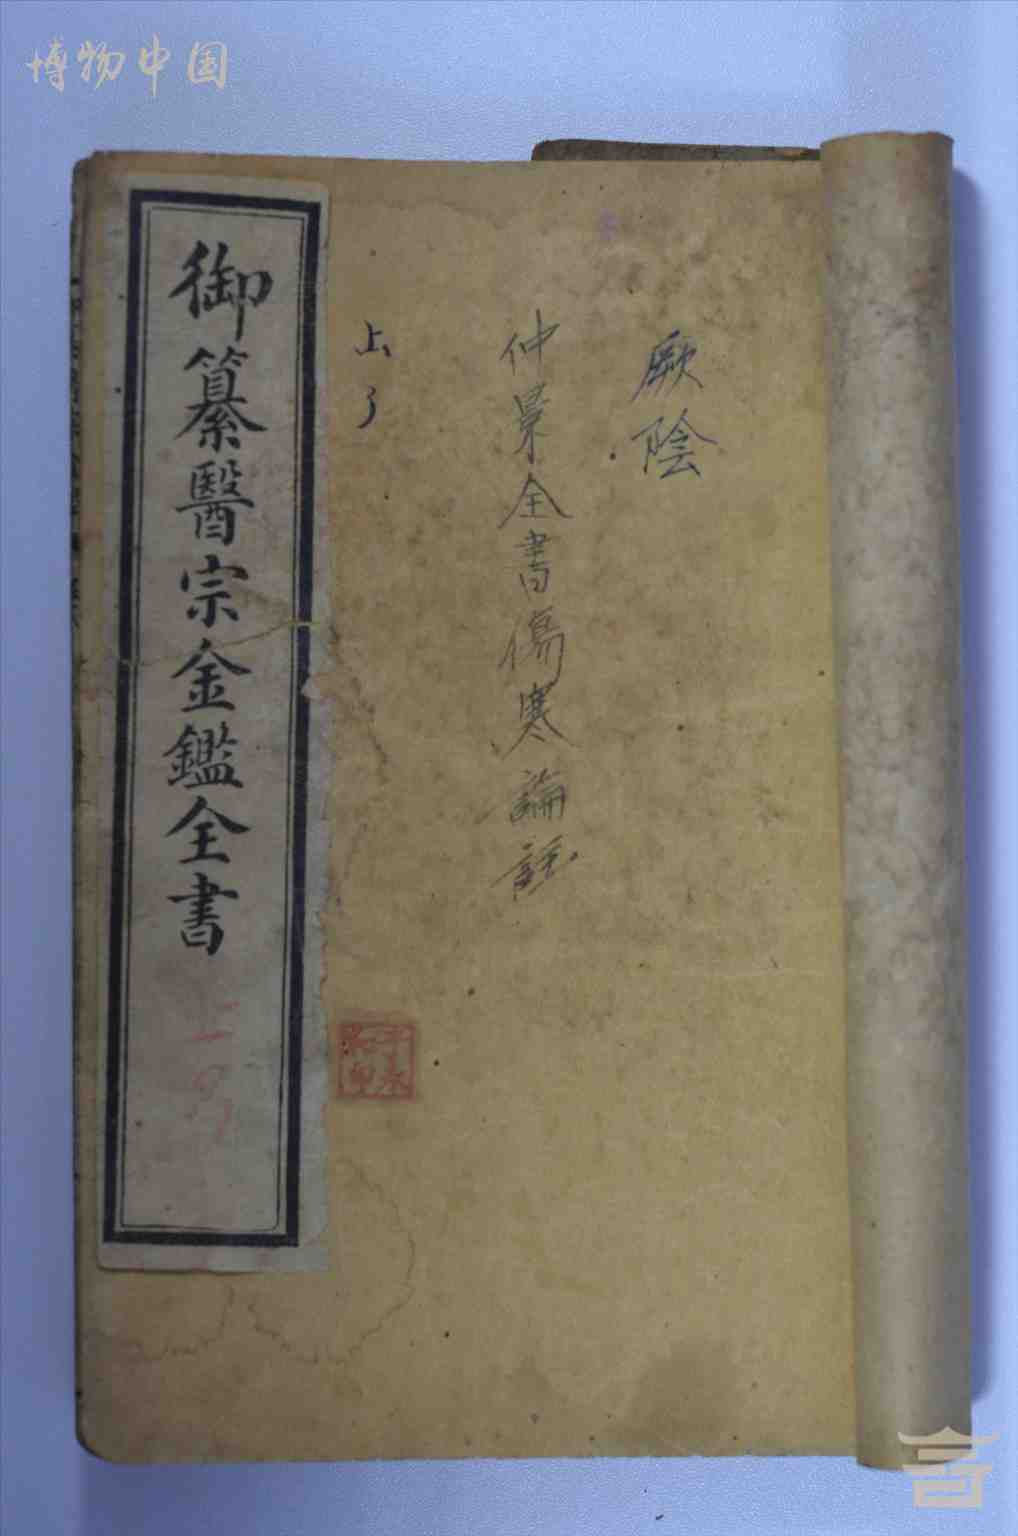 博物中国
厥陰
仲景全書傷寒論註
上
御纂醫宗金鑑全書